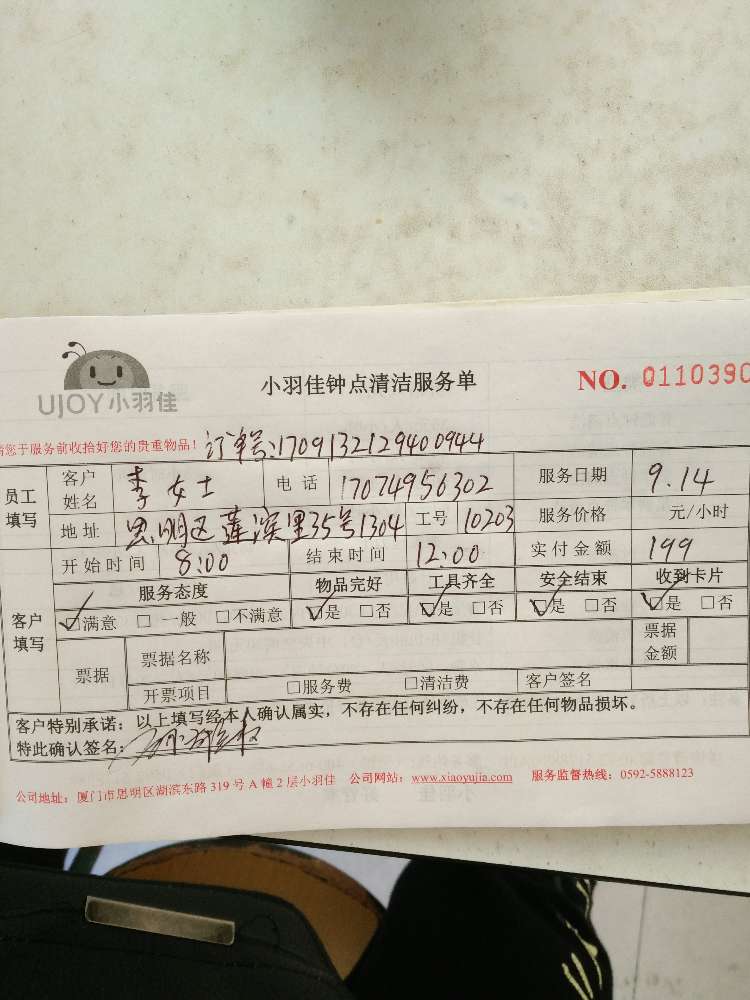 UJOY小羽佳
小羽佳钟点清洁服务单
NO. 0110390
请您于服务前收拾好您的贵重物品！ 订单号:1709132129400944
员工填写 客户姓名 李女士 电话 17074956302 服务日期 9.14
地址 思明区莲滨里35号1304 工号 10203 服务价格 元/小时
开始时间 8:00 结束时间 12:00 实付金额 199
客户填写 服务态度 物品完好 工具齐全 安全结束 收到卡片
☑满意 □一般 □不满意 ☑是 □否 ☑是 □否 ☑是 □否 ☑是 □否
票据 票据名称 票据金额
开票项目 □服务费 □清洁费 客户签名
客户特别承诺：以上填写经本人确认属实，不存在任何纠纷，不存在任何物品损坏。
特此确认签名：
公司地址：厦门市思明区湖滨东路 319 号 A 幢 2 层小羽佳 公司网站：www.xiaoyujia.com 服务监督热线：0592-5888123